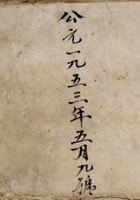 公元一九五三年五月九號